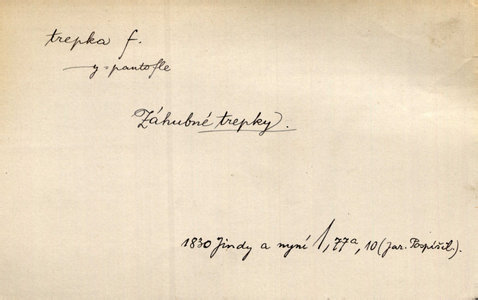 trepka f.
—y = pantofle
Záhubné trepky.
1830 Jindy a nyní 1, 77a, 10 (Jar. Pospíšil).